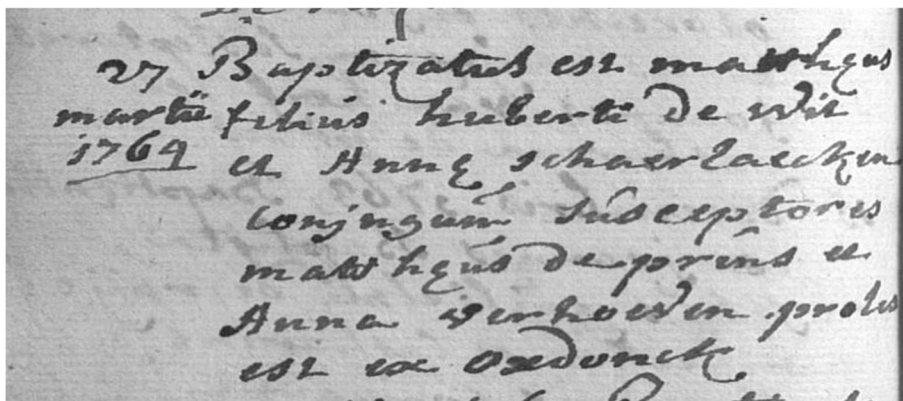 27 Baptizatus est mattheus
martii filius huberti de wit
1764 et Annę schaerlaecken
conjugum susceptores
mattheus de prins et
Anna verhoeven proles
est ex oxdonck